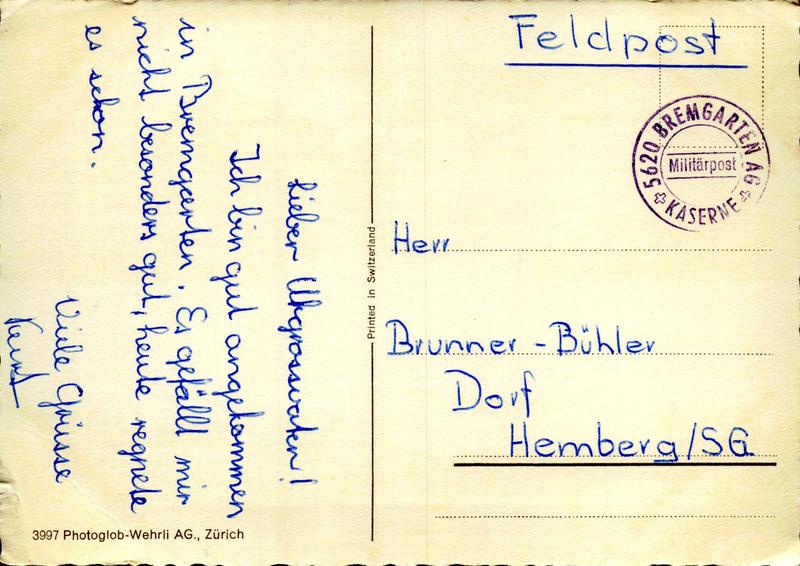 Lieber Urgrossvater!
Ich bin gut angekommen
in Bremgarten. Es gefällt mir
nicht besonders gut, heute regnete
es schon.
Viele Grüsse
Kurt
3997 Photoglob-Wehrli AG., Zürich
Printed in Switzerland
Feldpost
5620 BREMGARTEN AG
Militärpost
KASERNE
Herr
Brunner - Bühler
Dorf
Hemberg/SG